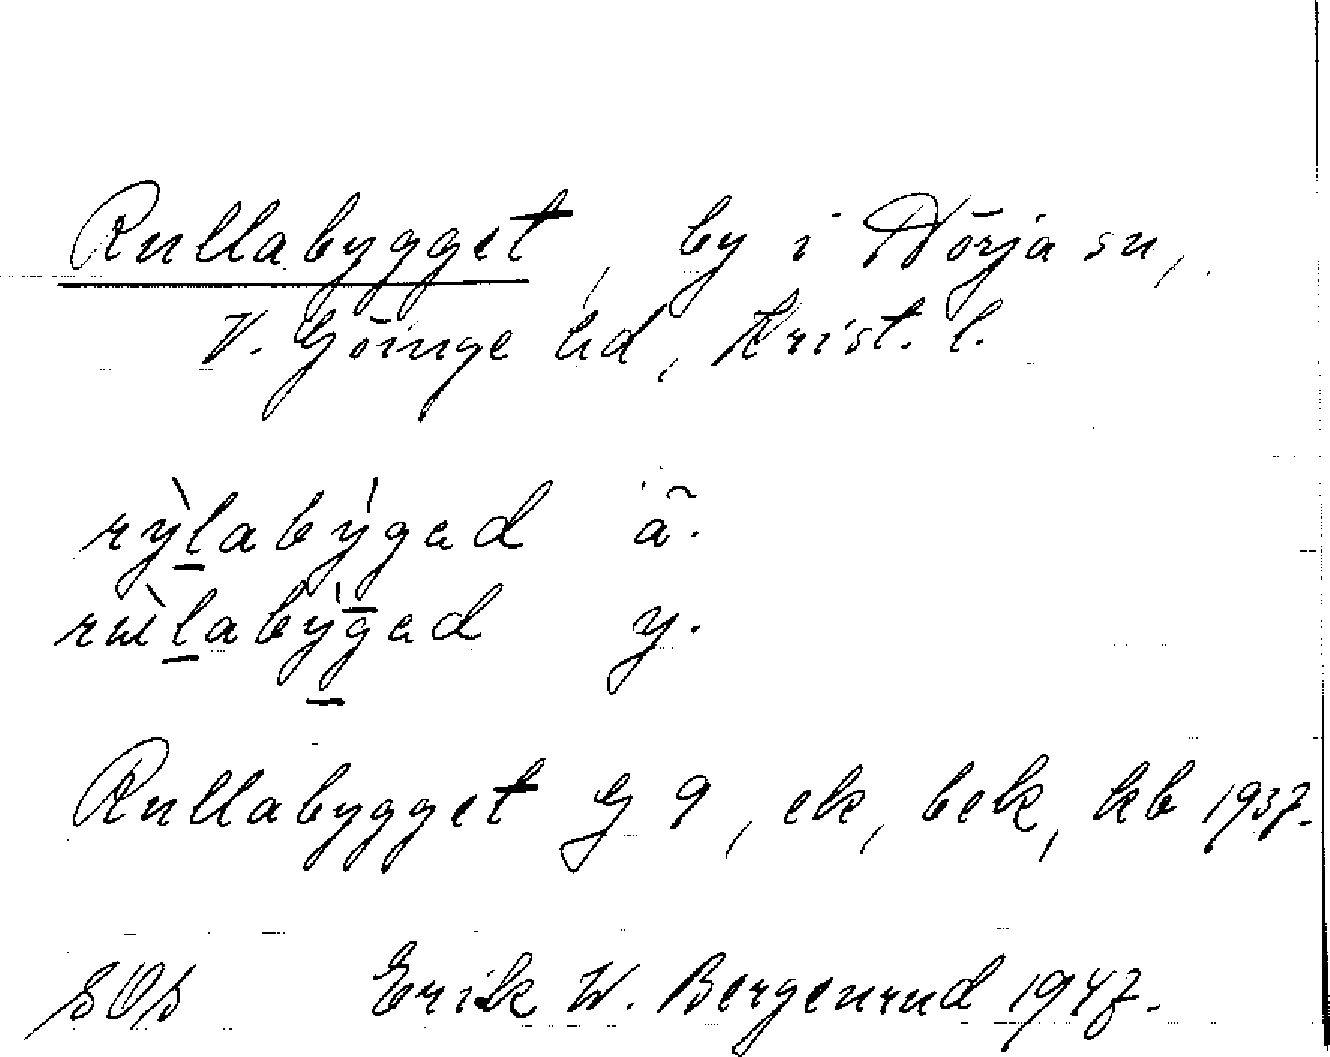 Rullabygget, by i Nörja sn,
V. Göinge hd, Krist. l.
rỳlabýgad ä.
rùlabýgad y.
Rullabygget G 9, ek, bek, kb 1937.
SOS Erik W. Bergenrud 1947.